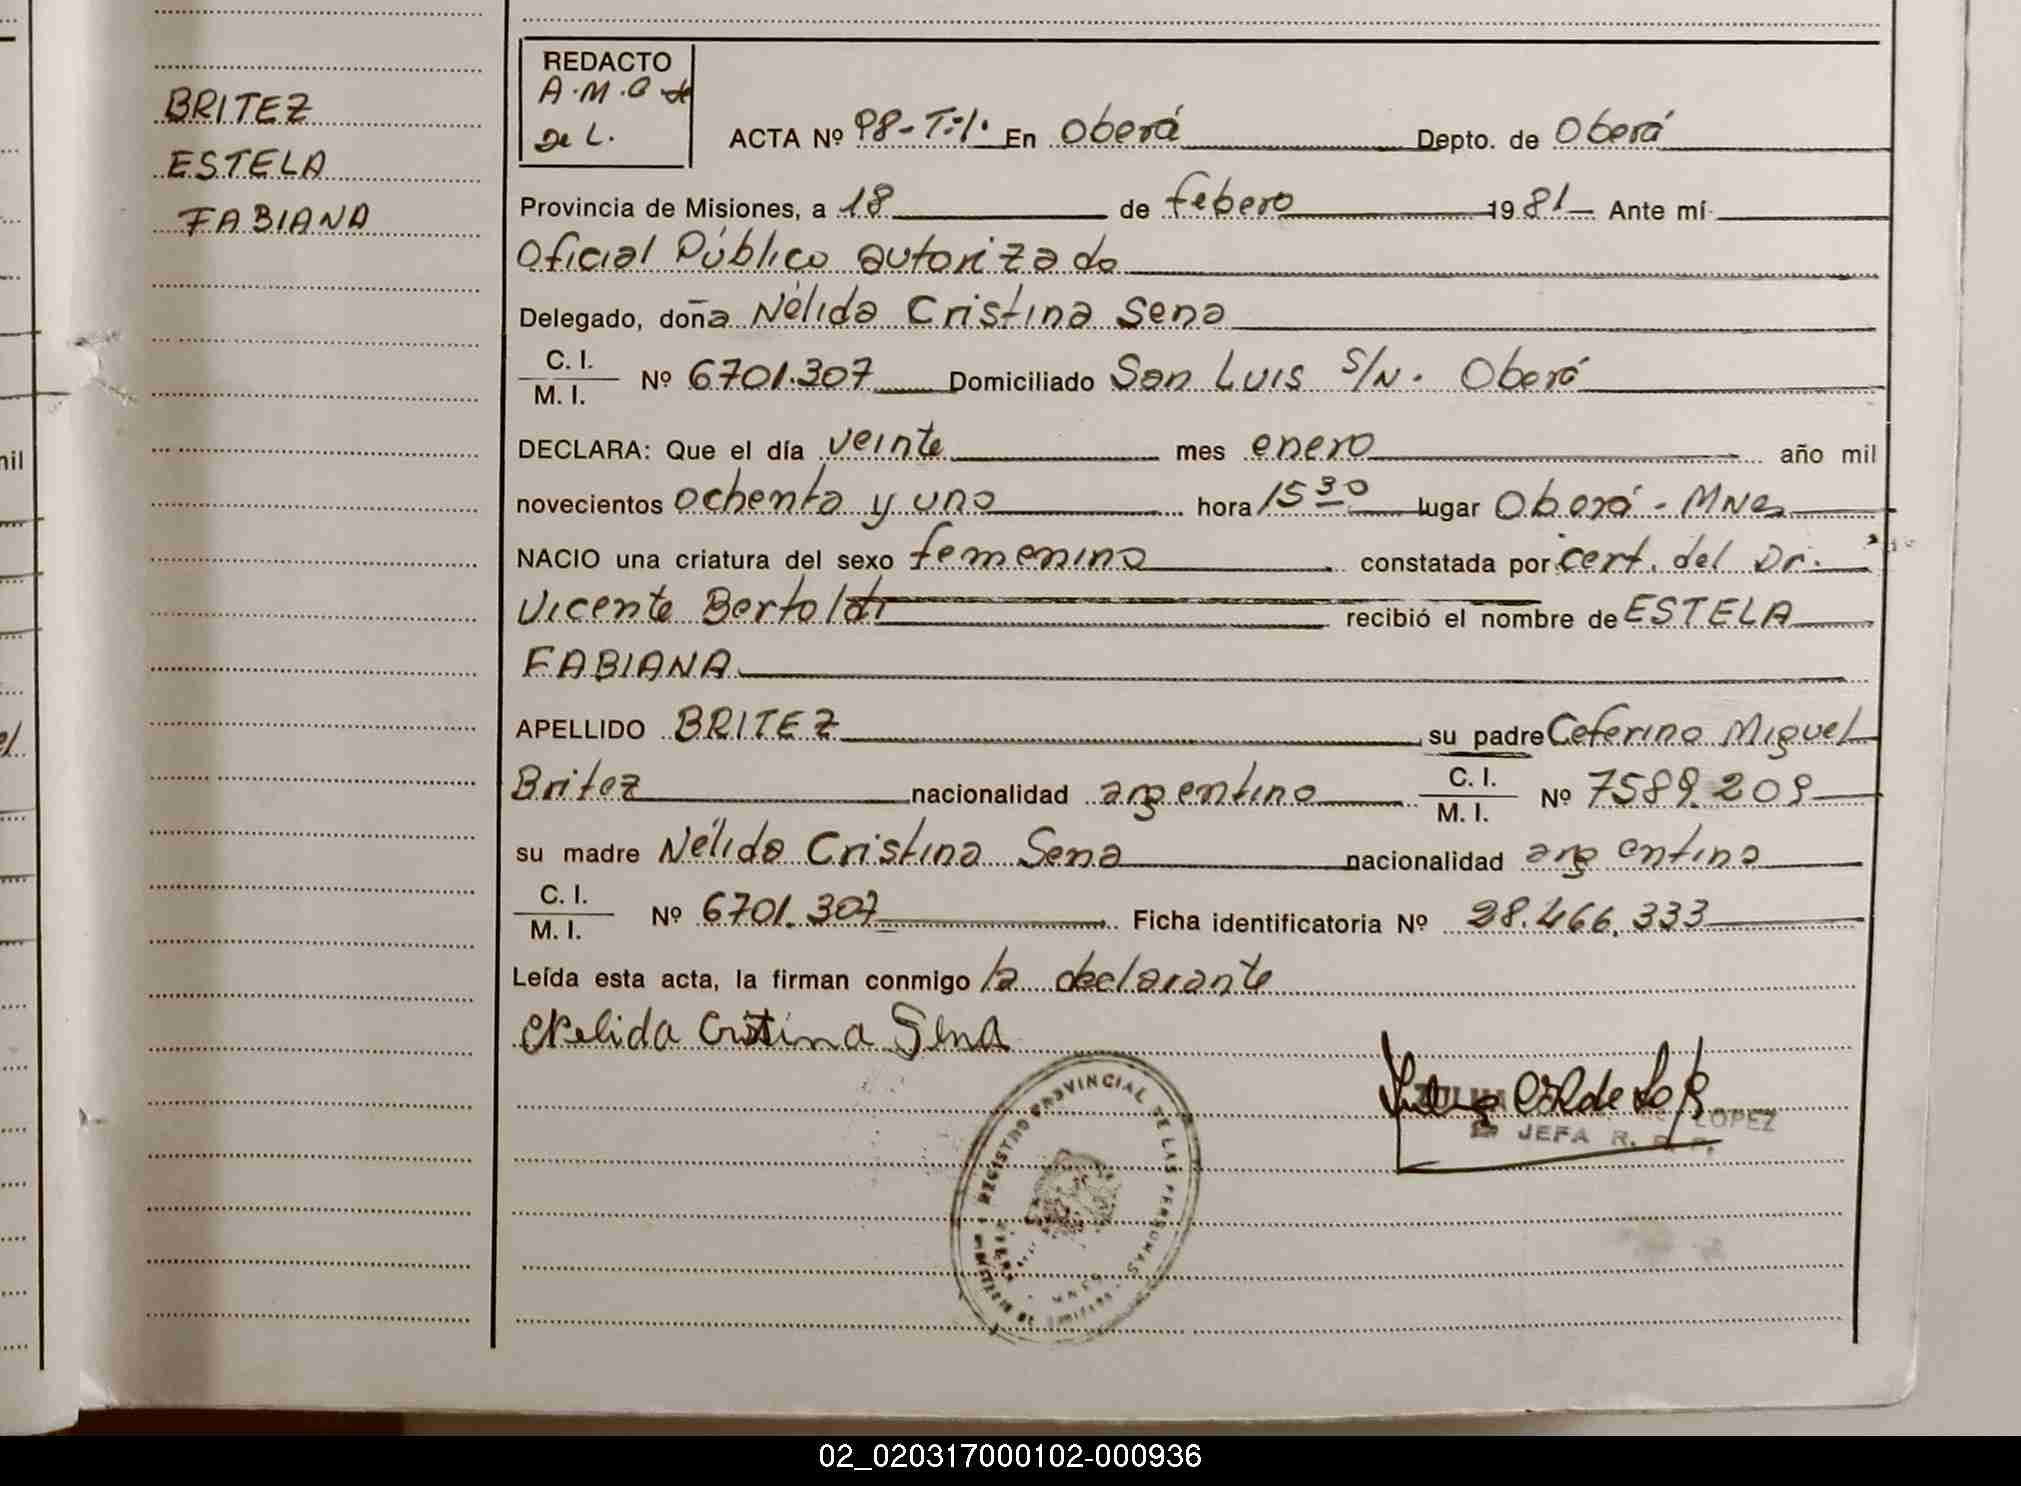 BRITEZ
ESTELA
FABIANA
REDACTO
A.M.O de
De L.
ACTA Nº 98-T:I. En Oberá Depto. de Oberá
Provincia de Misiones, a 18 de febero 1981 Ante mí
Oficial Público autorizado
Delegado, doña Nélida Cristina Sena
C. I.
M. I.
Nº 6701.307 Domiciliado San Luis S/N. Oberá
DECLARA: Que el día veinte mes enero año mil
novecientos ochenta y uno hora 15 30 lugar Oberá - Mnes
NACIO una criatura del sexo femenino constatada por cert. del Dr.
Vicente Bertoldi recibió el nombre de ESTELA
FABIANA
APELLIDO BRITEZ su padre Ceferino Miguel
Britez nacionalidad argentino C. I. M. I. Nº 7589.209
su madre Nélida Cristina Sena nacionalidad argentina
C. I.
M. I.
Nº 6701.307 Ficha identificatoria Nº 28.466.333
Leída esta acta, la firman conmigo la declarante
Nelida Cristina Sena
REGISTRO PROVINCIAL DE LAS PERSONAS
LOPEZ
JEFA R.
02_020317000102-000936